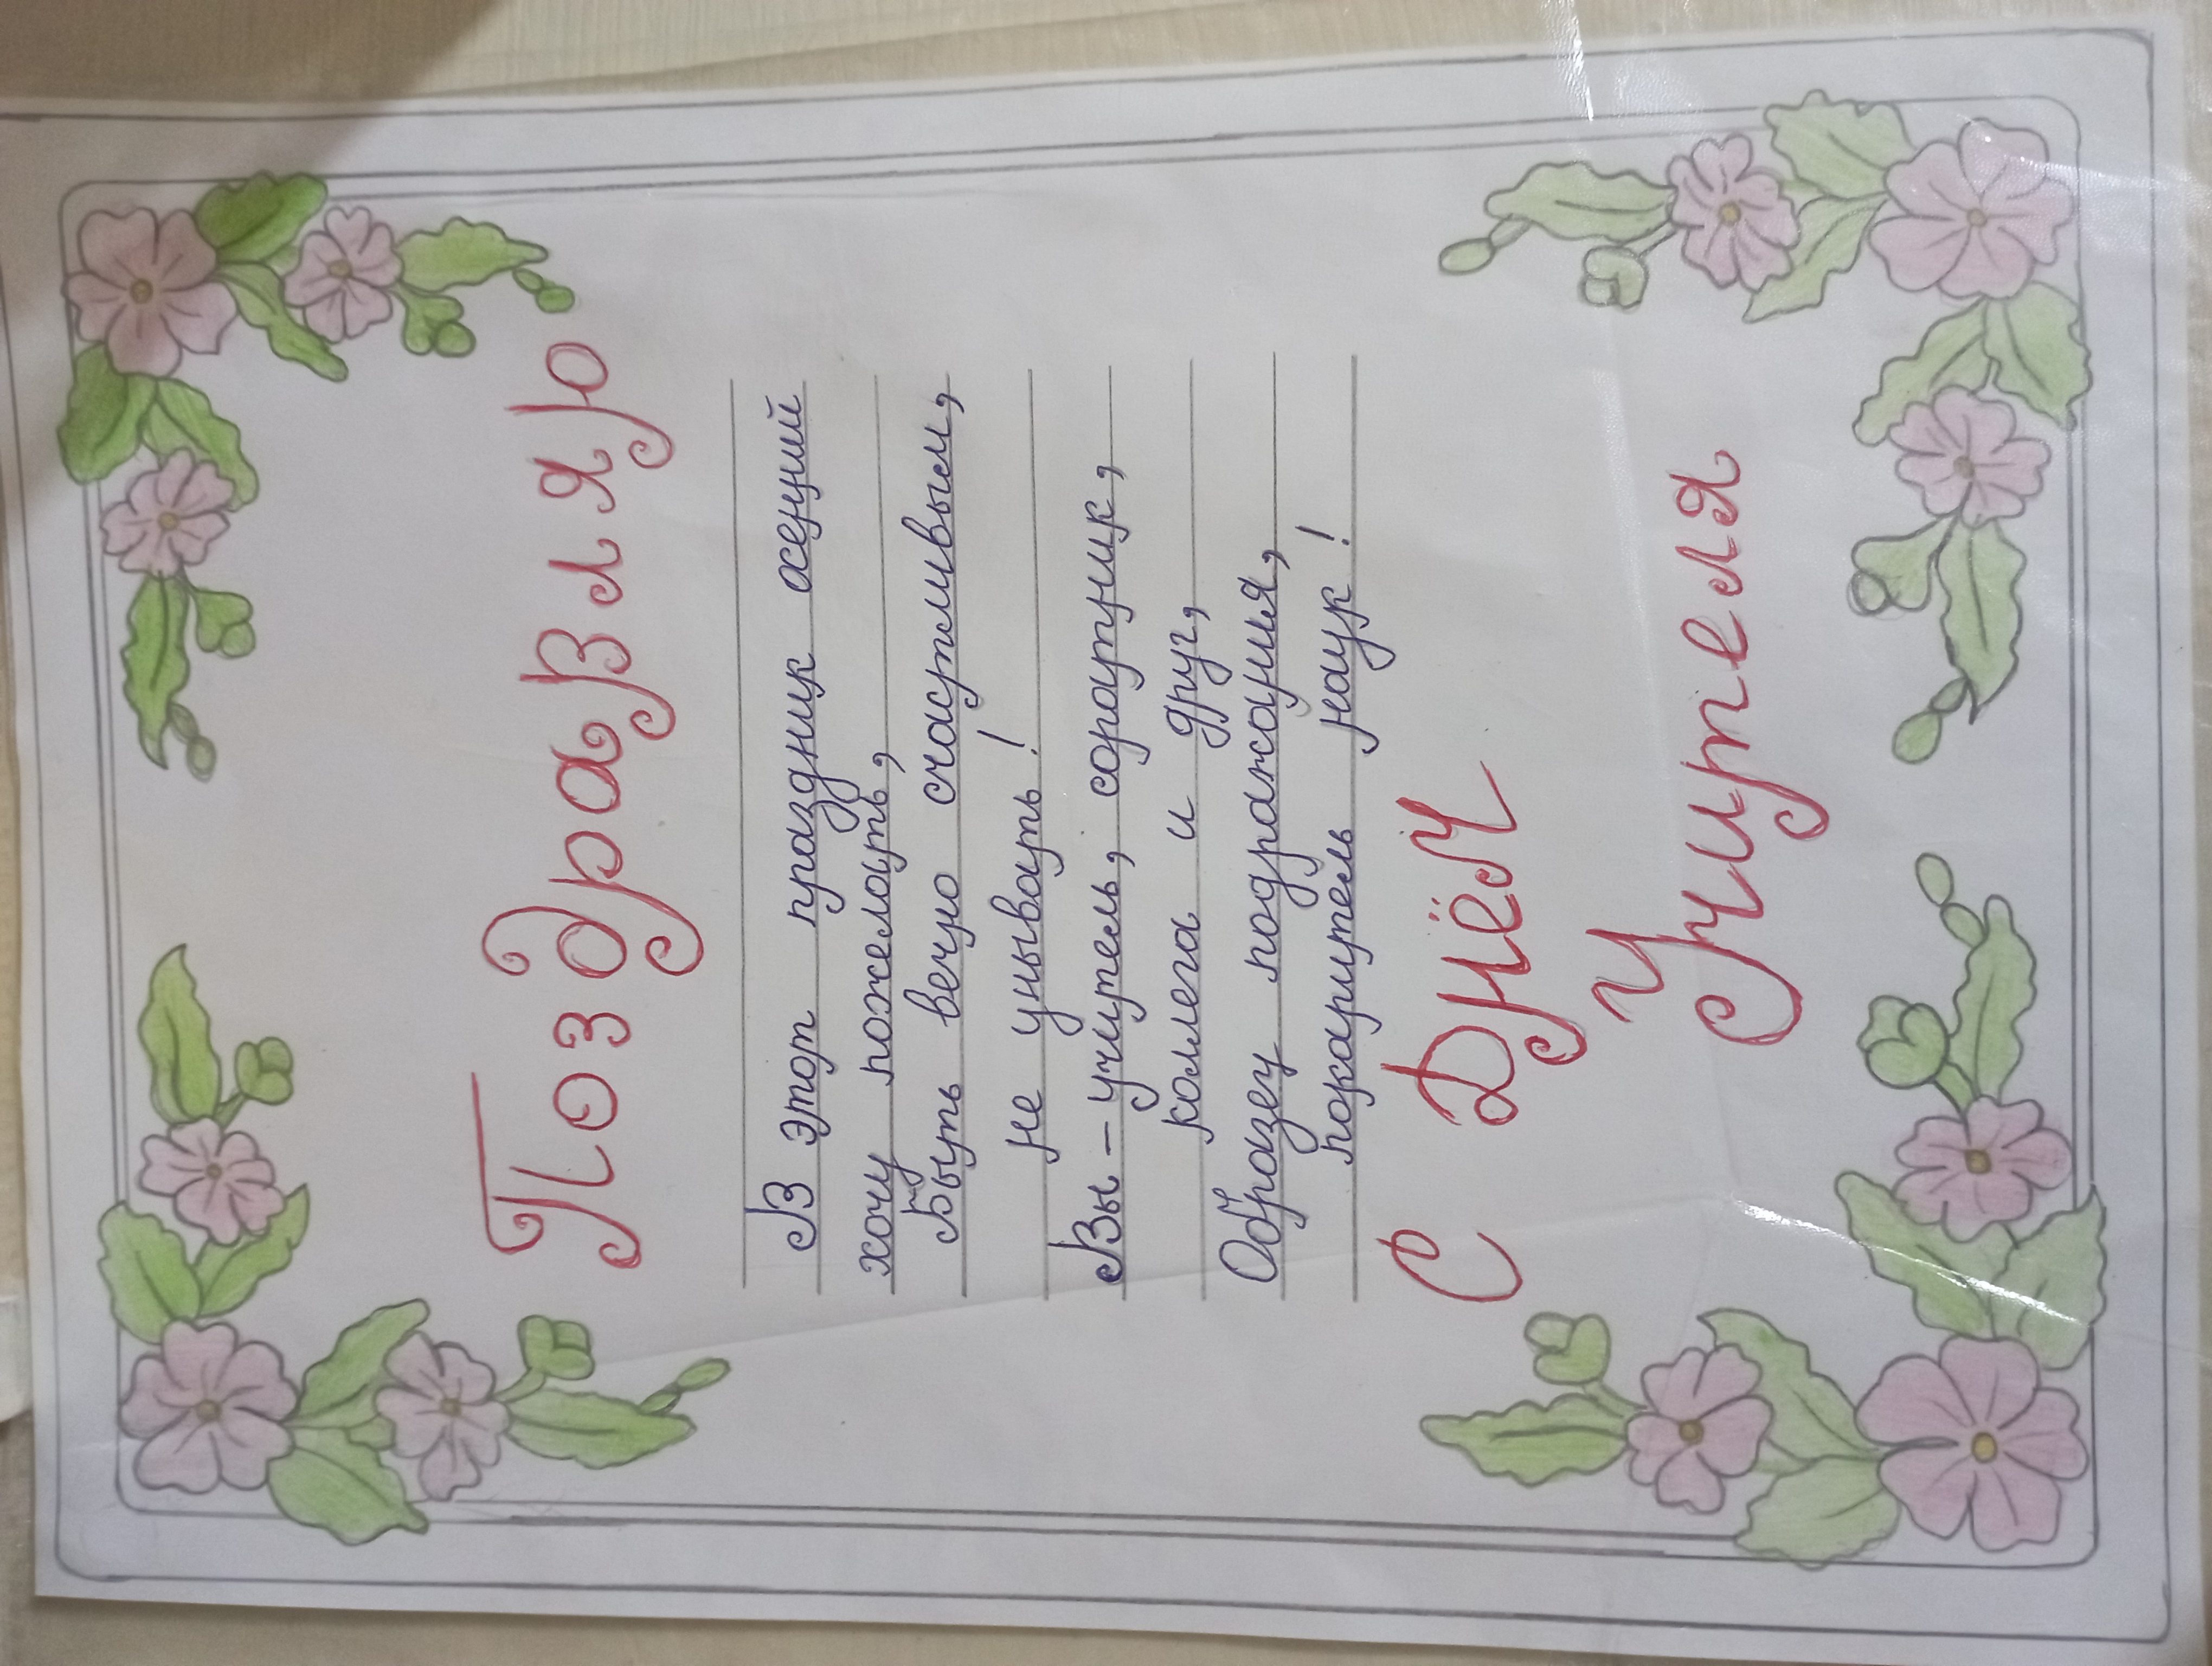 Поздравляю
В этот праздник осенний
хочу пожелать,
Быть вечно счастливым,
не унывать!
Вы - учитель, соратник,
коллега и друг,
Образец подражания,
покоритель наук!
С Днём
Учителя